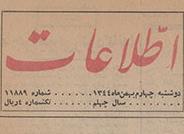 اطلاعات
دوشنبه چهارم بهمن ماه ۱۳۴۴ ..... شماره ۱۱۸۸۹
..... سال چهلم ..... تکشماره ۴ ریال